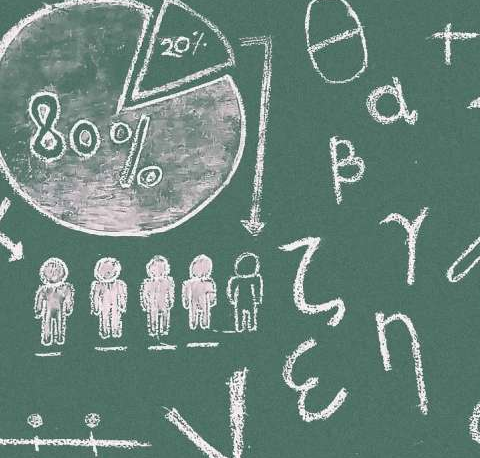 20%
80%
θ
+
α
β
γ
ζ
η
ε